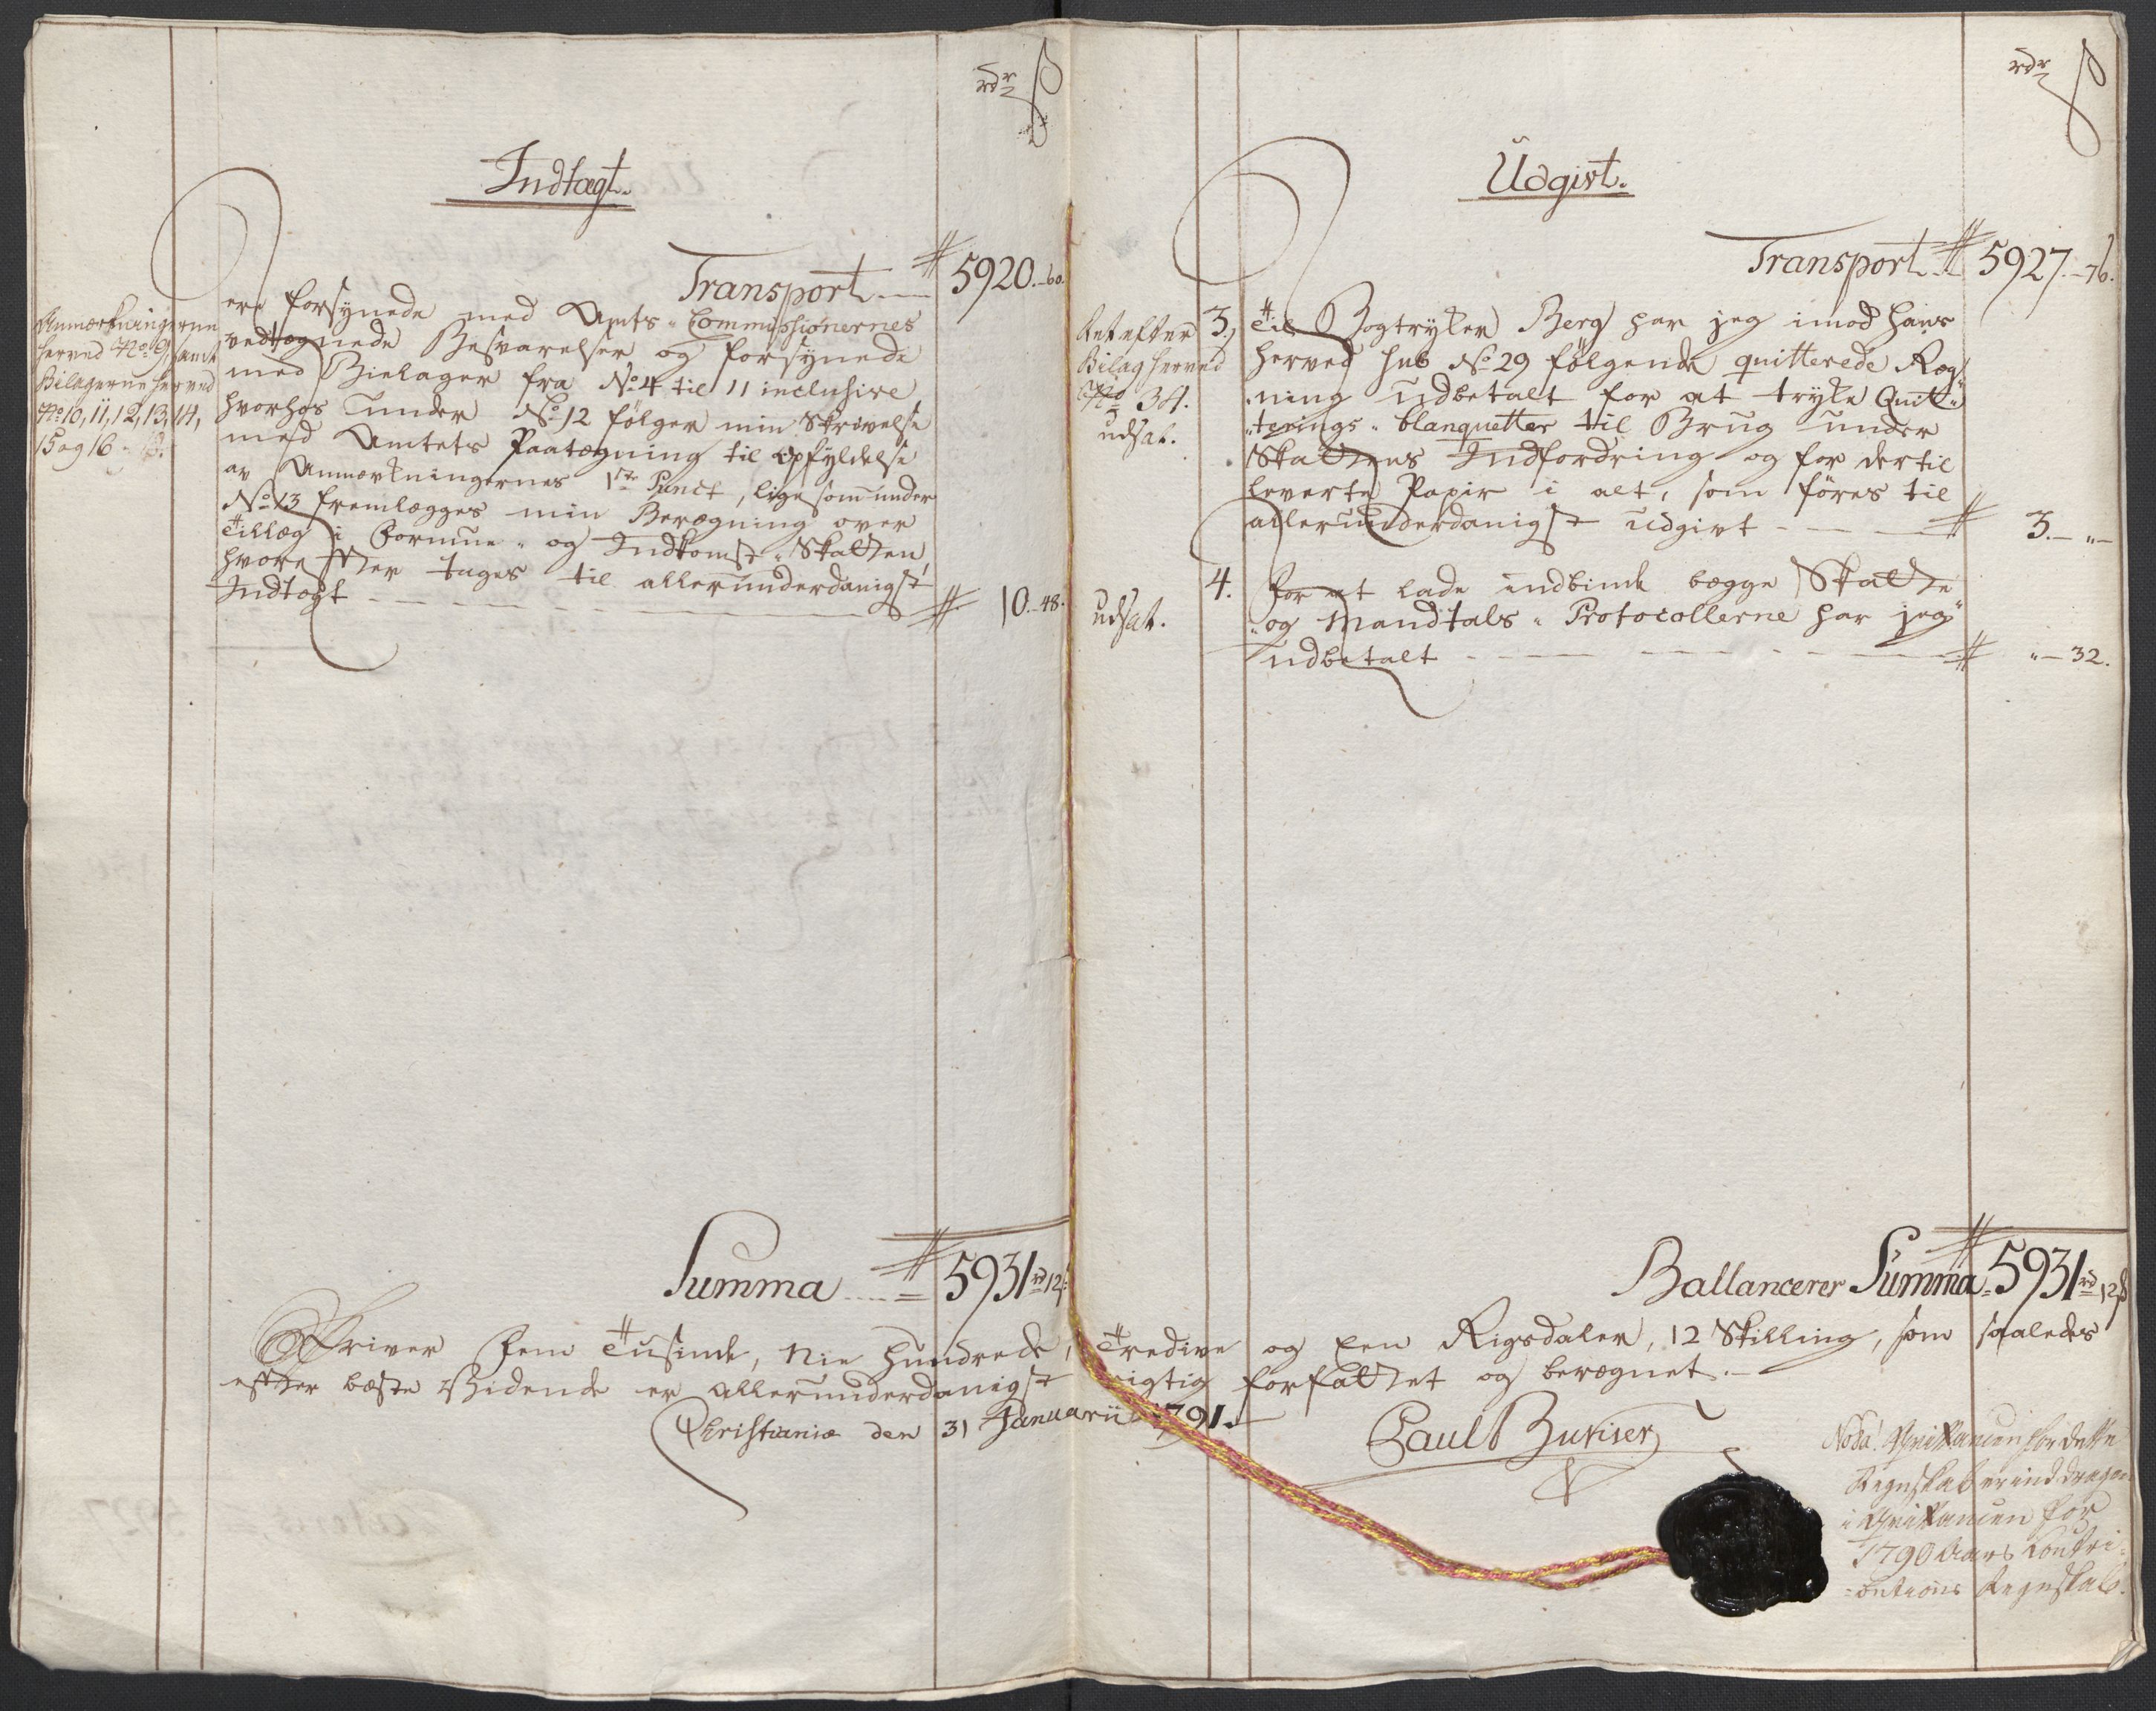 rdr ß
Indtægt.
Transport # 5920.-60.
Anmærkningerne
herved No 9, samt
Bilagerne herved
No 10, 11, 12, 13, 14,
15 og 16
ere forsynede med Amts-Commissionernes
vedtegnede Besvarelser og forsynede
med Bielager fra No 4 til 11 inclusive
hvorhos under No 12 følger min Skrivelse
med Amtets Paategning til Opfyldelse
av Anmærkningernes 1ste Punct, ligesom under
No 13 fremlægges min Beregning over
Tillæg i Formue- og Indkomst-Skatten,
hvorefter tages til allerunderdanigst
Indtægt # 10.-48.
Summa # 5931 rd 12 ß
rdr ß
Udgivt.
Transport # 5927.-76.
Ret efter
Bilag herved
No 34.
udsat.
3. Til Bogtryker Berg har jeg imod hans
herved sub No 29 følgende quitterede Reg-
ning udbetalt for at tryke Quit-
terings-blanquetter til Brug under
Skattens Indfordring og for dertil
leverte Papir i alt, som føres til
allerunderdanigst Udgivt # 3.-"-
udsat.
4. For at lade indbinde begge Skatte-
og Mandtals-Protocollerne har jeg
udbetalt # "-32.
Ballancerer Summa # 5931 rd 12 ß
Skriver Fem Tusinde, Nie Hundrede, Tredive og Een Rigsdaler, 12 Skilling, som saaledes
efter beste Vidende er allerunderdanigst rigtig forfattet og beregnet.
Christiania den 31 Januarii 1791.
Paul
Nota! Qvittancen for dette
Regnskab er inddragen
i Qvittancen for
1790 Aars Contri-
butions Regnskab.